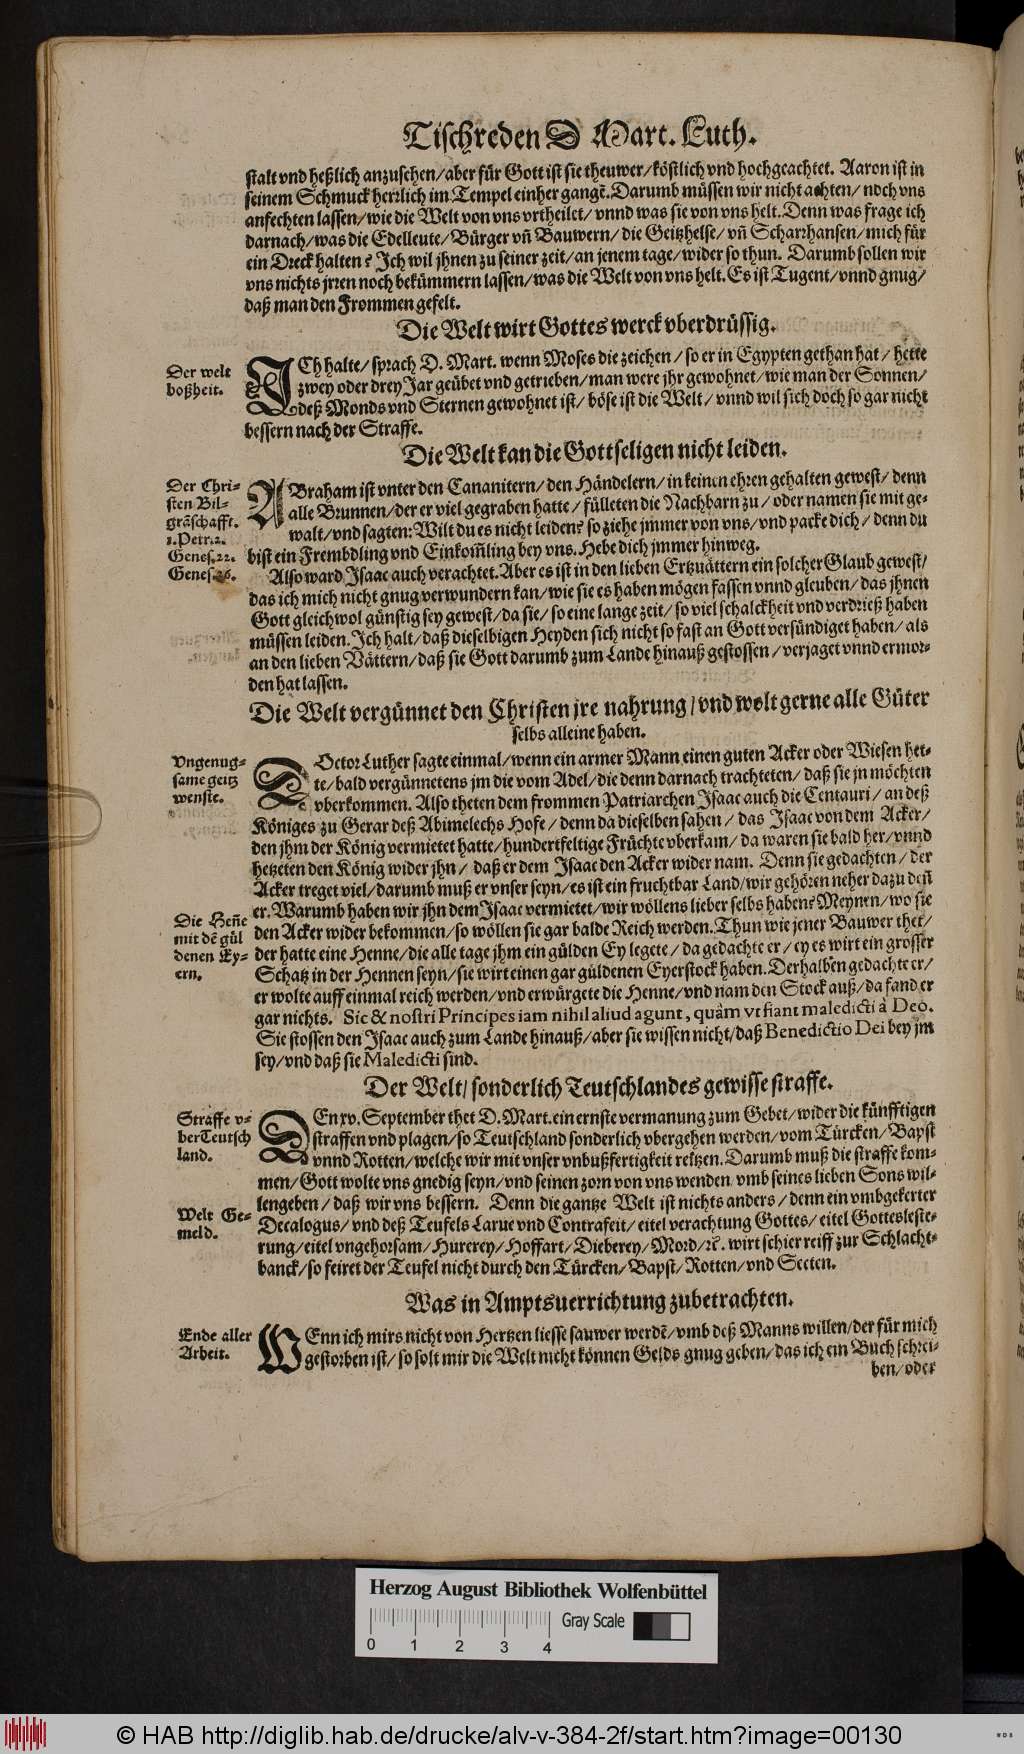 Tischreden D Mart. Luth.
stalt vnd heßlich anzusehen/aber für Gott ist sie theuwer/köstlich vnd hochgeachtet. Aaron ist in
seinem Schmuck herrlich im Tempel einher gangẽ. Darumb müssen wir nicht achten/noch vns
anfechten lassen/wie die Welt von vns vrtheilet/vnnd was sie von vns helt. Denn was frage ich
darnach/was die Edelleute/Bürger vñ Bauwern/die Geitzhelse/vñ Scharrhansen/mich für
ein Dreck halten? Ich wil jhnen zu seiner zeit/an jenem tage/wider so thun. Darumb sollen wir
vns nichts jrren noch bekümmern lassen/was die Welt von vns helt. Es ist Tugent/vnnd gnug/
daß man den Frommen gefelt.
Die Welt wirt Gottes werck vberdrüssig.
Der welt
boßheit.
ICh halte/sprach D. Mart. wenn Moses die zeichen/so er in Egypten gethan hat/hette
zwey oder drey Jar geübet vnd getrieben/man were jhr gewohnet/wie man der Sonnen/
deß Monds vnd Sternen gewohnet ist/böse ist die Welt/vnnd wil sich doch so gar nicht
bessern nach der Straffe.
Die Welt kan die Gottseligen nicht leiden.
Der Chri-
sten Bil-
grãschafft.
1. Petr. 2.
Genes. 22.
Genes. 26.
ABraham ist vnter den Cananitern/den Händelern/in keinen ehren gehalten gewest/denn
alle Brunnen/der er viel gegraben hatte/fülleten die Nachbarn zu/oder namen sie mit ge-
walt/vnd sagten: Wilt du es nicht leiden? so ziehe jmmer von vns/vnd packe dich/denn du
bist ein Frembdling vnd Einkom̃ling bey vns. Hebe dich jmmer hinweg.
Also ward Isaac auch verachtet. Aber es ist in den lieben Ertzuättern ein solcher Glaub gewest/
das ich mich nicht gnug verwundern kan/wie sie es haben mögen fassen vnnd gleuben/das jhnen
Gott gleichwol günstig sey gewest/da sie/so eine lange zeit/so viel schalckheit vnd verdrieß haben
müssen leiden. Ich halt/daß dieselbigen Heyden sich nicht so fast an Gott versündiget haben/als
an den lieben Vättern/daß sie Gott darumb zum Lande hinauß gestossen/verjaget vnnd ermor-
den hat lassen.
Die Welt vergünnet den Christen jre nahrung/vnd wolt gerne alle Güter
selbs alleine haben.
Vngenug-
same geitz
wenste.
DOctor Luther sagte einmal/wenn ein armer Mann einen guten Acker oder Wiesen het-
te/bald vergünnetens jm die vom Adel/die denn darnach trachteten/daß sie jn möchten
vberkommen. Also theten dem frommen Patriarchen Isaac auch die Centauri/an deß
Königes zu Gerar deß Abimelechs Hofe/denn da dieselben sahen/das Isaac von dem Acker/
den jhm der König vermietet hatte/hundertfeltige Früchte vberkam/da waren sie bald her/vnnd
hetzeten den König wider jhn/daß er dem Isaac den Acker wider nam. Denn sie gedachten/der
Acker treget viel/darumb muß er vnser seyn/es ist ein fruchtbar Land/wir gehören neher dazu deñ
er. Warumb haben wir jhn dem Isaac vermietet/wir wöllens lieber selbs haben? Meynen/wo sie
den Acker wider bekommen/so wöllen sie gar balde Reich werden. Thun wie jener Bauwer thet/
der hatte eine Henne/die alle tage jhm ein gülden Ey legete/da gedachte er/ey es wirt ein grosser
Schatz in der Hennen seyn/sie wirt einen gar güldenen Eyerstock haben. Derhalben gedachte er/
er wolte auff einmal reich werden/vnd erwürgete die Henne/vnd nam den Stock auß/da fand er
gar nichts. Sic & nostri Principes iam nihil aliud agunt, quàm vt fiant maledicti à Deo.
Sie stossen den Isaac auch zum Lande hinauß/aber sie wissen nicht/daß Benedictio Dei bey jm
sey/vnd daß sie Maledicti sind.
Die Heñe
mit dẽ gül
denen Ey-
ern.
Der Welt/sonderlich Teutschlandes gewisse straffe.
Straffe v-
ber Teutsch
land.
DEn xv. September thet D. Mart. ein ernste vermanung zum Gebet/wider die künfftigen
straffen vnd plagen/so Teutschland sonderlich vbergehen werden/vom Türcken/Bapst
vnnd Rotten/welche wir mit vnser vnbußfertigkeit reitzen. Darumb muß die straffe kom-
men/Gott wolte vns gnedig seyn/vnd seinen zorn von vns wenden vmb seines lieben Sons wil-
len geben/daß wir vns bessern. Denn die gantze Welt ist nichts anders/denn ein vmbgekerter
Decalogus/vnd deß Teufels Larue vnd Contrafeit/eitel verachtung Gottes/eitel Gotteslеste-
rung/eitel vngehorsam/Hurerey/Hoffart/Dieberey/Mord/ꝛc̃. wirt schier reiff zur Schlacht-
banck/so feiret der Teufel nicht durch den Türcken/Bapst/Rotten/vnd Secten.
Welt Ge-
meld.
Was in Amptsuerrichtung zubetrachten.
Ende aller
Arbeit.
WEnn ich mirs nicht von Hertzen liesse sauwer werdẽ/vmb deß Manns willen/der für mich
gestorben ist/so solt mir die Welt nicht können Gelds gnug geben/das ich ein Buch schrei-
ben/oder
Herzog August Bibliothek Wolfenbüttel
Gray Scale
0 1 2 3 4
© HAB http://diglib.hab.de/drucke/alv-v-384-2f/start.htm?image=00130